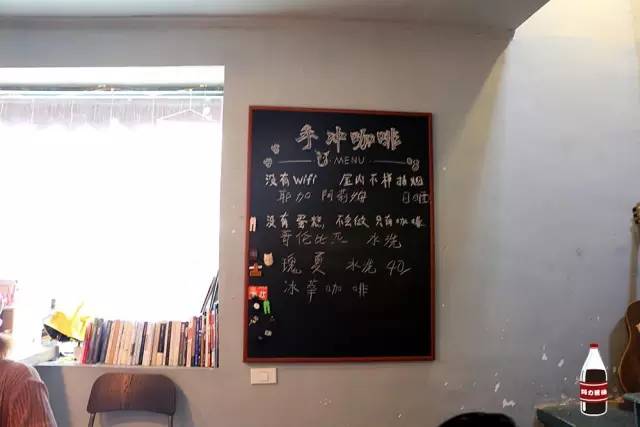 手冲咖啡
MENU
没有Wifi 屋内不样抽烟
耶加 阿莉姆 日晒
没有蛋糕,不会做 只有咖啡
哥伦比亚 水洗
瑰夏 水洗 40
冰萃咖啡